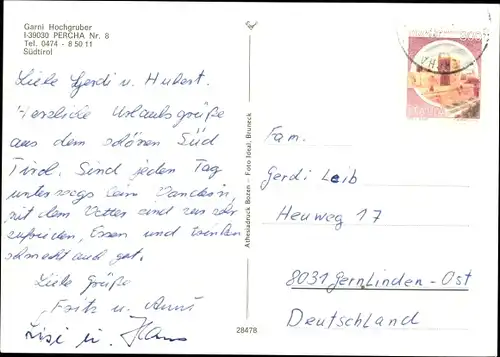 Garni Hochgruber
I-39030 PERCHA Nr. 8
Tel. 0474 - 8 50 11
Südtirol
Liebe Gerdi u. Hubert.
Herzliche Urlaubsgrüße
aus dem schönen Süd
Tirol. Sind jeden Tag
unterwegs beim Wandern,
mit dem Wetter sind wir sehr
zufrieden, Essen und trinken
schmeckt auch gut.
Liebe Grüße
Fritz u. Anni
Lisi u. Hans
Athesiadruck Bozen - Foto Ideal, Bruneck
28478
Fam.
Gerdi Leib
Heuweg 17
8031 Gernlinden-Ost
Deutschland